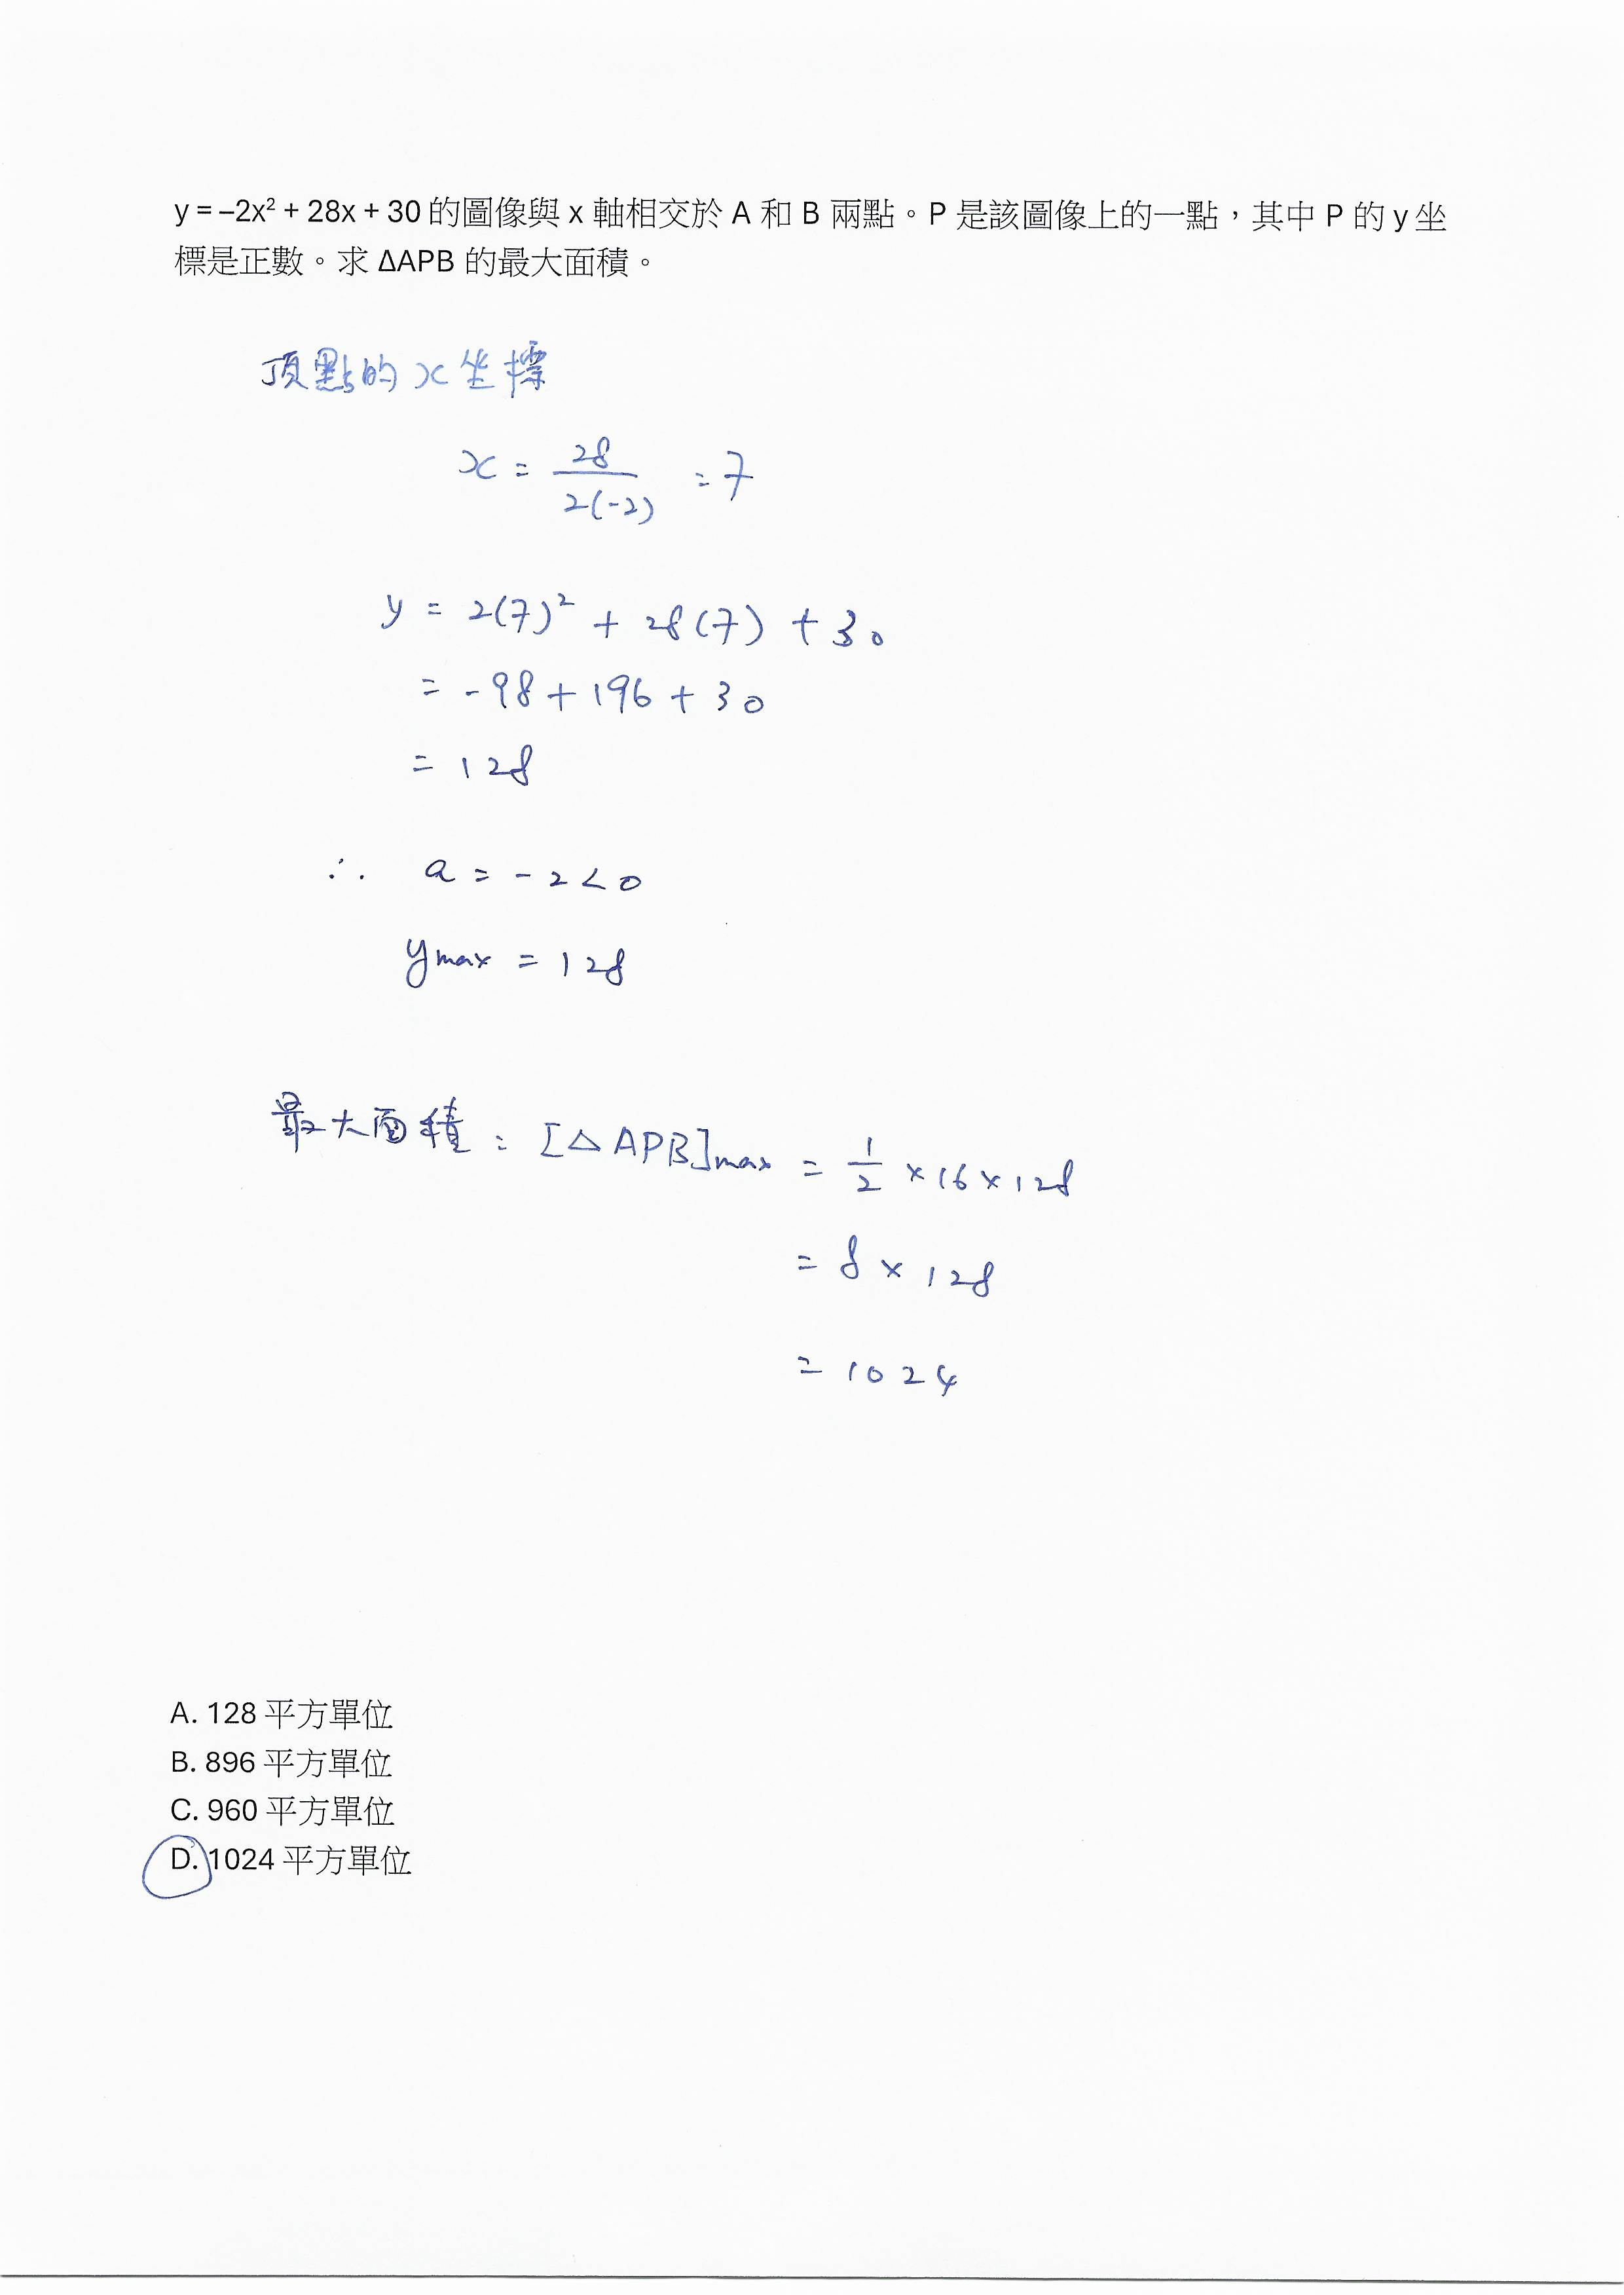 y = –2x² + 28x + 30 的圖像與 x 軸相交於 A 和 B 兩點。P 是該圖像上的一點，其中 P 的 y 坐
標是正數。求 ΔAPB 的最大面積。
頂點的 x 坐標
x = 28/2(-2) = 7
y = 2(7)² + 28(7) + 30
= -98 + 196 + 30
= 128
∴ a = -2 < 0
ymax = 128
最大面積 : [△APB]max = 1/2 × 16 × 128
= 8 × 128
= 1024
A. 128 平方單位
B. 896 平方單位
C. 960 平方單位
D. 1024 平方單位